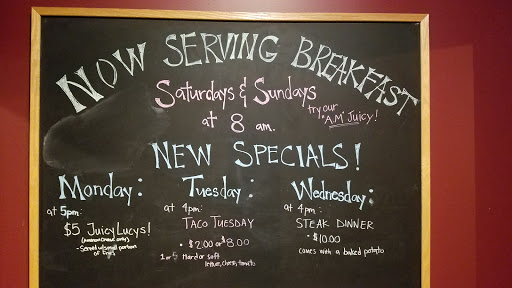 NOW SERVING BREAKFAST
Saturdays & Sundays
at 8 am.
try our
"A.M" Juicy!
NEW SPECIALS!
Monday:
at 5pm:
$5 JuicyLucys!
(American cheese only)
- Served w/ small portion
of fries
Tuesday:
at 4pm:
TACO TUESDAY
• $2.00 or $8.00
1 or 5 Hard or soft
lettuce, cheese, tomato
Wednesday:
at 4pm:
STEAK DINNER
• $10.00
comes with a baked potato